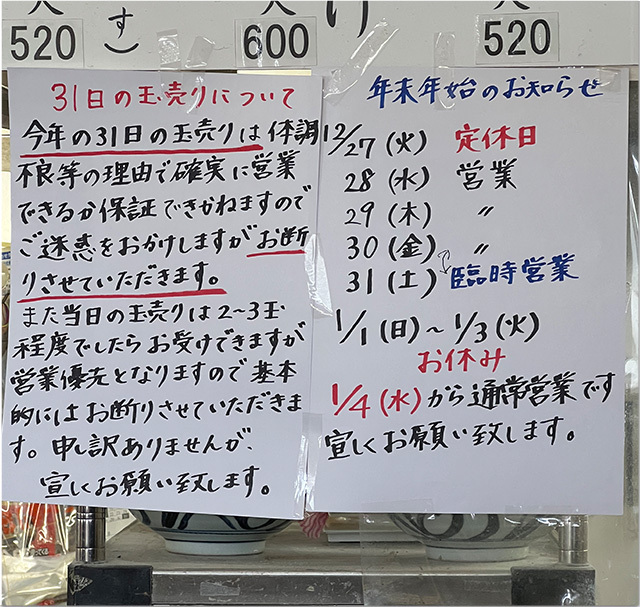 520
す)
600
け
520
31日の玉売りについて
今年の31日の玉売りは体調
不良等の理由で確実に営業
できるか保証できかねますので
ご迷惑をおかけしますがお断
りさせていただきます。
また当日の玉売りは2~3玉
程度でしたらお受けできますが
営業優先となりますので基本
的にはお断りさせていただきま
す。申し訳ありませんが、
宜しくお願い致します。
年末年始のお知らせ
12/27(火) 定休日
28(水) 営業
29(木) 〃
30(金) 〃
31(土) 臨時営業
1/1(日)~1/3(火)
お休み
1/4(水)から通常営業です
宜しくお願い致します。